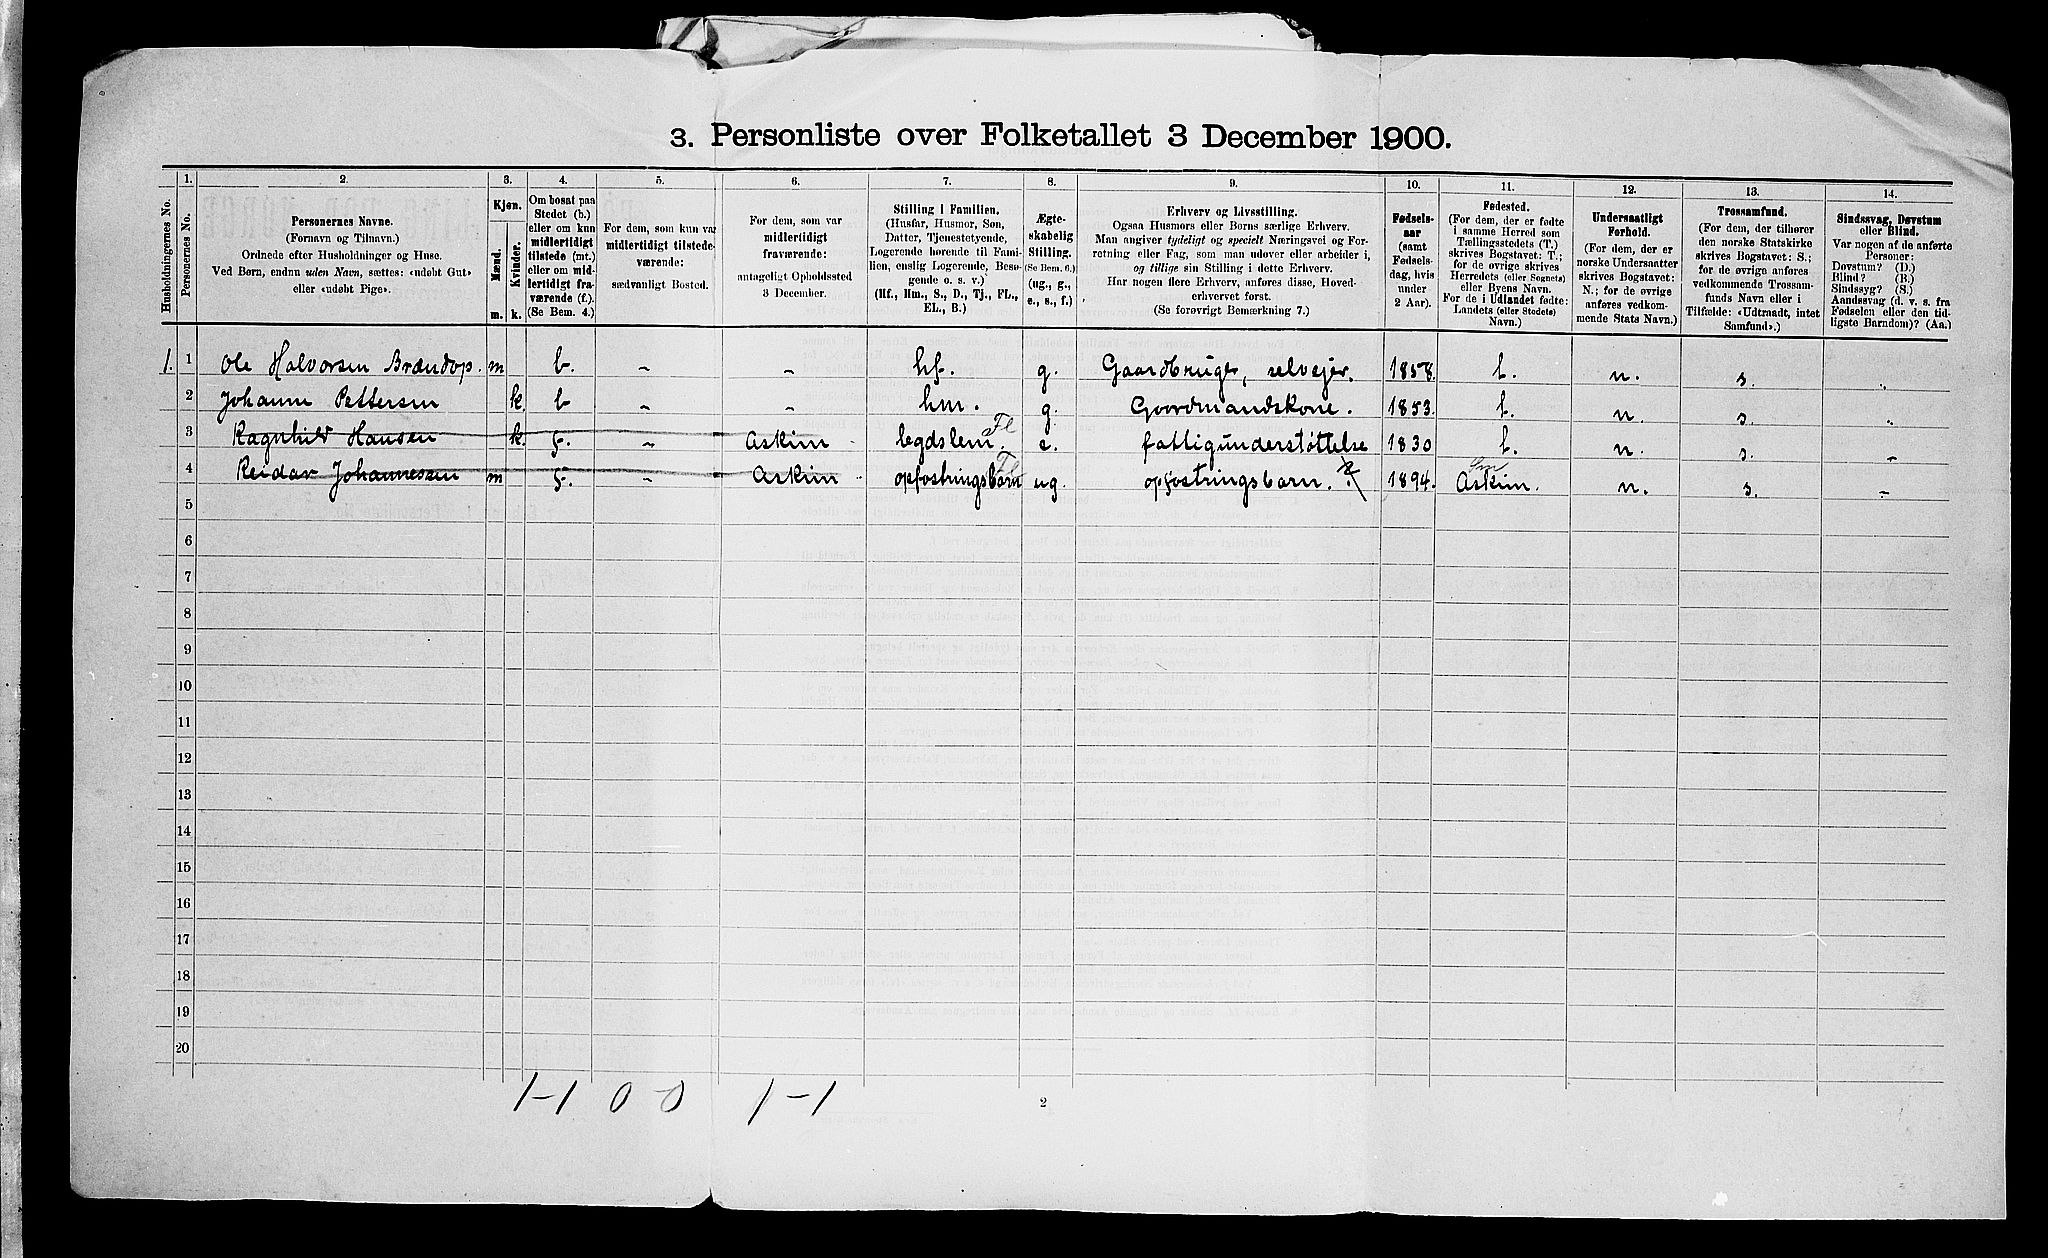 3. Personliste over Folketallet 3 December 1900.
Husholdningernes No.
1.
Personernes No.
2.
Personernes Navne.
(Fornavn og Tilnavn.)
Ordnede efter Husholdninger og Huse.
Ved Børn, endnu uden Navn, sættes: «udøbt Gut»
eller «udøbt Pige».
3.
Kjøn.
Mænd.
Kvinder.
m. k.
4.
Om bosat paa
Stedet (b.)
eller om kun
midlertidigt
tilstede (mt.)
eller om mid-
lertidigt fra-
værende (f.).
(Se Bem. 4.)
5.
For dem, som kun var
midlertidigt tilstede-
værende:
sædvanligt Bosted.
6.
For dem, som var
midlertidigt
fraværende:
antageligt Opholdssted
3 December.
7.
Stilling i Familien.
(Husfar, Husmor, Søn,
Datter, Tjenestetyende,
Logerende hørende til Fami-
lien, enslig Logerende, Besø-
gende o. s. v.)
(Hf., Hm., S., D., Tj., FL.,
EL., B.)
8.
Ægte-
skabelig
Stilling.
(Se Bem. 6.)
(ug., g.,
e., s., f.)
9.
Erhverv og Livsstilling.
Ogsaa Husmors eller Børns særlige Erhverv.
Man angiver tydeligt og specielt Næringsvei og For-
retning eller Fag, som man udover eller arbeider i,
og tillige sin Stilling i dette Erhverv.
Har nogen flere Erhverv, anføres disse, Hoved-
erhvervet først.
(Se forøvrigt Bemærkning 7.)
10.
Fødsels-
aar
(samt
Fødsels-
dag, hvis
under
2 Aar).
11.
Fødested.
(For dem, der er fødte
i samme Herred som
Tællingsstedets (T.)
skrives Bogstavet: T.;
for de øvrige skrives
Herredets (eller Sognets)
eller Byens Navn.
For de i Udlandet fødte:
Landets (eller Stedets)
Navn.)
12.
Undersaatligt
Forhold.
(For dem, der er
norske Undersaatter
skrives Bogstavet:
N.; for de øvrige
anføres vedkom-
mende Stats Navn.)
13.
Trossamfund.
(For dem, der tilhører
den norske Statskirke
skrives Bogstavet: S.;
for de øvrige anføres
vedkommende Trossam-
funds Navn eller i
Tilfælde: «Udtraadt, intet
Samfund».)
14.
Sindssvag, Døvstum
eller Blind.
Var nogen af de anførte
Personer:
Døvstum? (D.)
Blind? (B.)
Sindssyg? (S.)
Aandssvag (d. v. s. fra
Fødselen eller den tid-
ligste Barndom)? (Aa.)
1. 1 Ole Halvorsen Brændop. m b. - - hf. g. Gaardbruger, selvejer. 1858. t. n. s. „
2 Johanne Pettersen k. b - - hm. g. Gaardmandskone. 1853. t. n. s. „
3 Ragnhild Hansen k. f. - Askim legdslem FL e. fattigunderstøttelse 1830 t. n. s. -
4 Reidar Johannessen m f. - Askim opfostringsbarn FL ug. opfostringsbarn. 1894. Askim. n. s. -
5
6
7
8
9
10
11
12
13
14
15
16
17
18
19
20
1-1 0-0 1-1
2